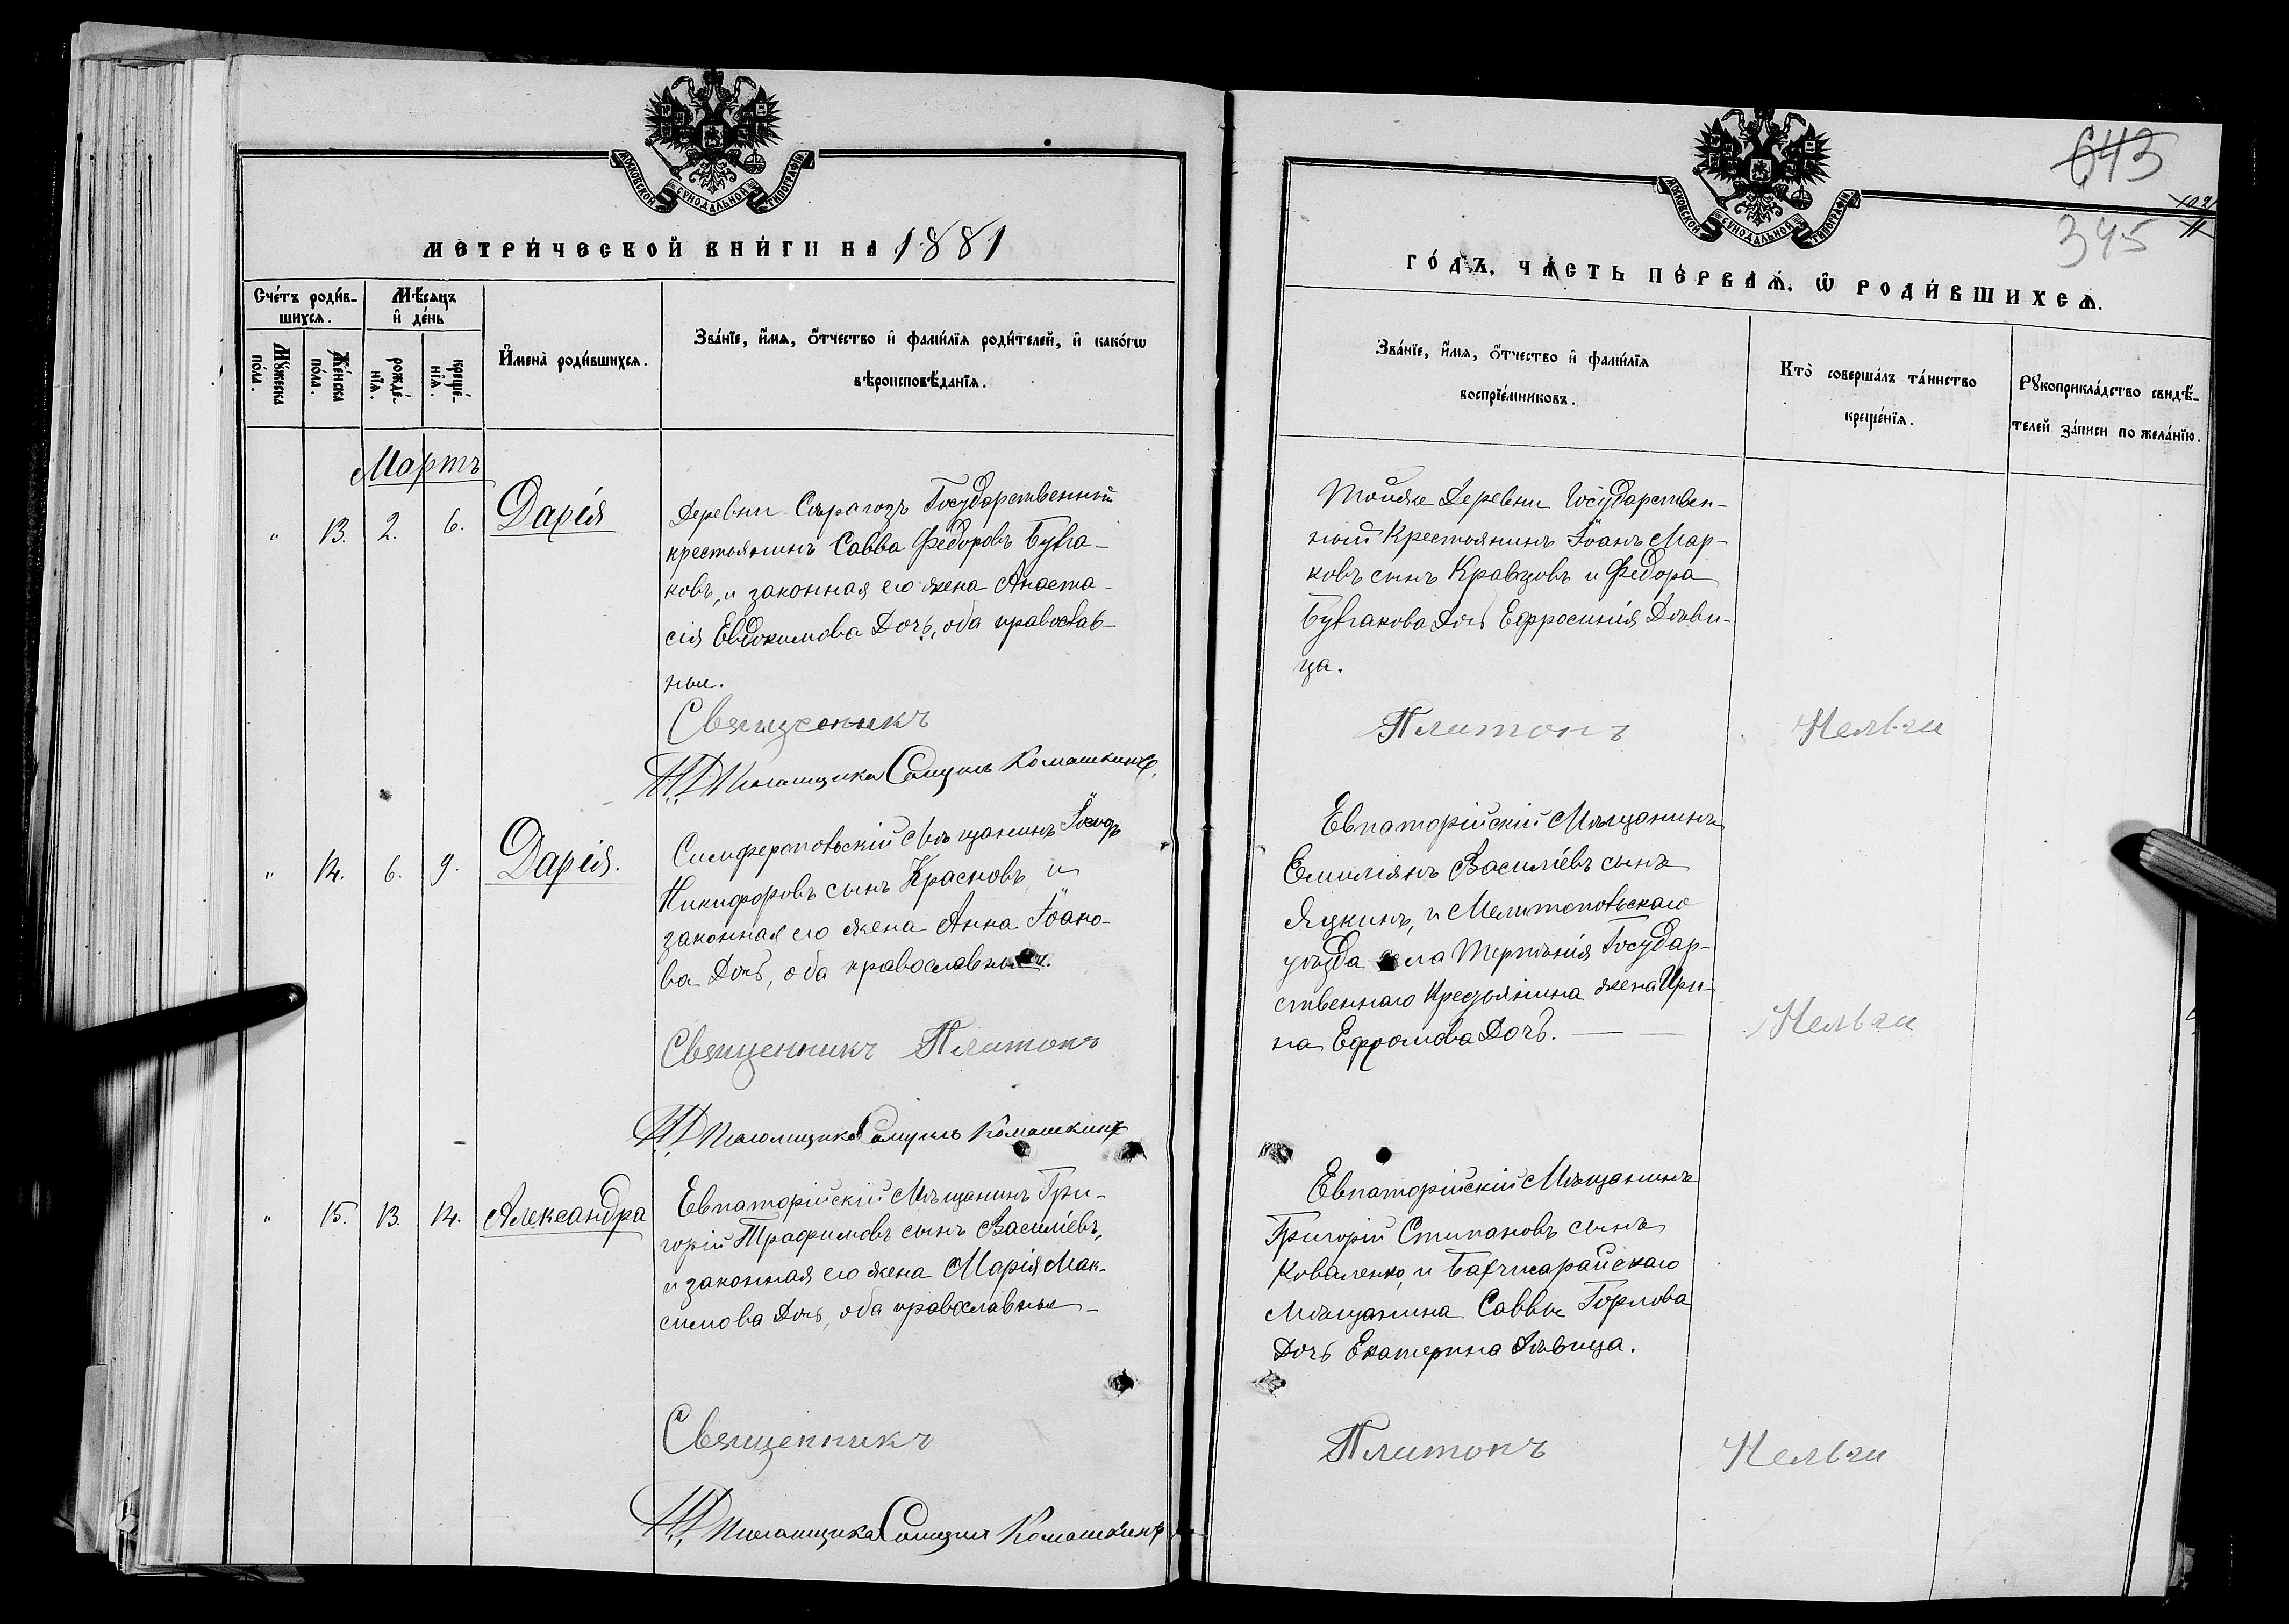 МОСКОВСКОЙ СѴНОДАЛЬНОЙ ТИПОГРАФІИ
МЕТРИ́ЧЕСКОЙ КНИ́ГИ НА 1881
Сче́тъ роди́в-
шихсѧ.
Мѣ́сѧцъ
и҆ де́нь
Мꙋ́жеска
по́ла.
Же́нска
по́ла.
рожде́-
нїѧ.
креще́-
нїѧ.
И҆мена̀ роди́вшихсѧ.
Зва́нїе, и҆́мѧ, ѻ҆́тчество и҆ фами́лїѧ роди́телей, и҆ како́гѡ
вѣроисповѣ́данїѧ.
Мартъ
" 13. 2. 6. Дарія
Деревни Государственный
крестьянинъ Савва Ѳедоровъ Булга-
ковъ, и законная его жена Анаста-
сія Евдокимова Дочь, оба православ-
ные.
Священникъ
И. Д. Псаломщика Самуилъ Комашкинъ
" 14. 6. 9. Дарія.
Симферопольскій Мѣщанинъ
Никифоровъ сынъ Красновъ, и
законная его жена Анна Іоано-
ва Дочь, оба православные.
Священникъ Платонъ
И. Д. Псаломщика Самуилъ Комашкинъ
" 15. 13. 14. Александра
Евпаторійскій Мѣщанинъ Гри-
горій Трафимовъ сынъ Василіевъ,
и законная его жена Марія Мак-
симова Дочь, оба православные
Священникъ
И. Д. Псаломщика Самуилъ Комашкинъ
643
345
МОСКОВСКОЙ СѴНОДАЛЬНОЙ ТИПОГРАФІИ
ГО́ДЪ, ЧА́СТЬ ПЕ́РВАѦ, Ѽ РОДИ́ВШИХСѦ.
Зва́нїе, и҆́мѧ, ѻ҆́тчество и҆ фами́лїѧ
воспрїе́мниковъ.
Кто̀ соверша́лъ та́инство
креще́нїѧ.
Рꙋкоприкла́дство свидѣ́-
телей за́писи по жела́нїю.
Тойже Деревни Государствен-
ный Крестьянинъ Іоанъ Мар-
ковъ сынъ Кравцовъ и Ѳедора
Булгакова дочь Ефросинія Дѣви-
ца.
Платонъ
Евпаторійскій Мѣщанинъ
Емиліянъ Василіевъ сынъ
Яцкинъ, и Мелитопольскаго
уѣзда села Терпѣнія Государ-
ственнаго Крестьянина жена Ири-
на Ефромова Дочь.
Евпаторійскій Мѣщанинъ
Григорій Стипановъ сынъ
Коваленко, и Бахчисарайскаго
Мѣщанина Саввы Горлова
Дочь Екатерина Дѣвица.
Платонъ